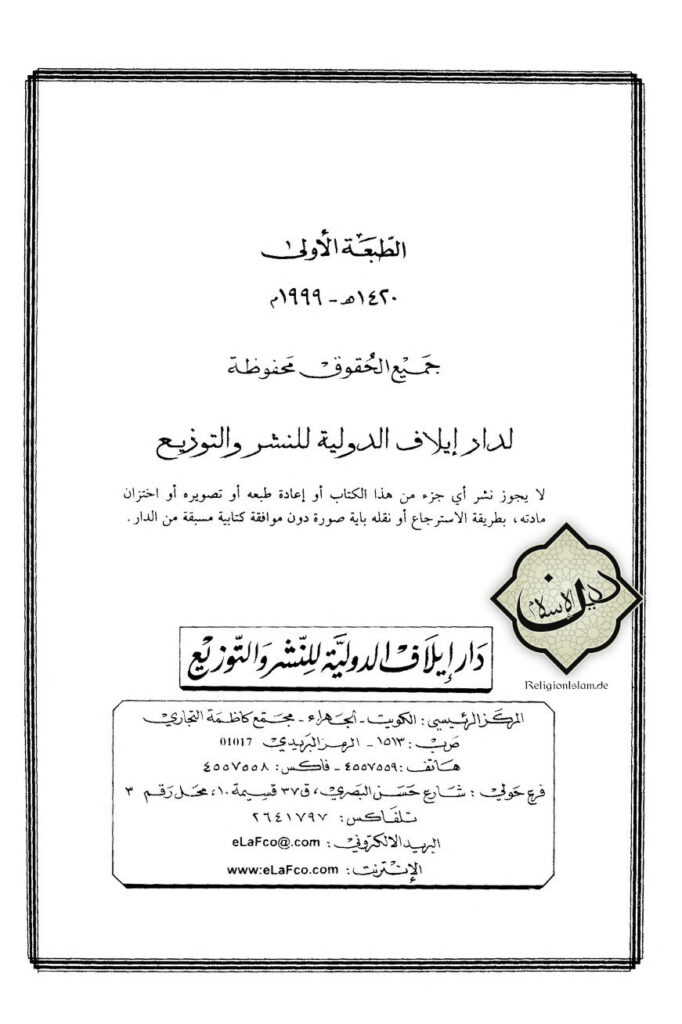 الطّبعَة الأولى
١٤٢٠هـ - ١٩٩٩م
جَميْع الحُقوق مَحفوظة
لدار إيلاف الدولية للنشر والتوزيع
لا يجوز نشر أي جزء من هذا الكتاب أو إعادة طبعه أو تصويره أو اختزان
مادته، بطريقة الاسترجاع أو نقله باية صورة دون موافقة كتابية مسبقة من الدار.
دين الإسلام
ReligionIslam.de
دَار إيلاف الدوليَّة للنّشر وَالتّوزيْع
المركز الرئيسيّ: الكويت - الجهراء - مجتمع كاظمة التجاري
صَ.بْ: ١٥١٣ - الرمز البَريْدي 01017
هَاتف: ٤٥٥٧٥٥٩ - فاكس: ٤٥٥٧٥٥٨
فرع حَولي: شارع حَسَن البَصري، ق٣٧ قسِيمَة ١٠، محَل رَقم ٣
تلفاكس: ٢٦٤١٧٩٧
البريد الالكتروني: eLaFco@.com
الإنترنت: www:eLaFco.com